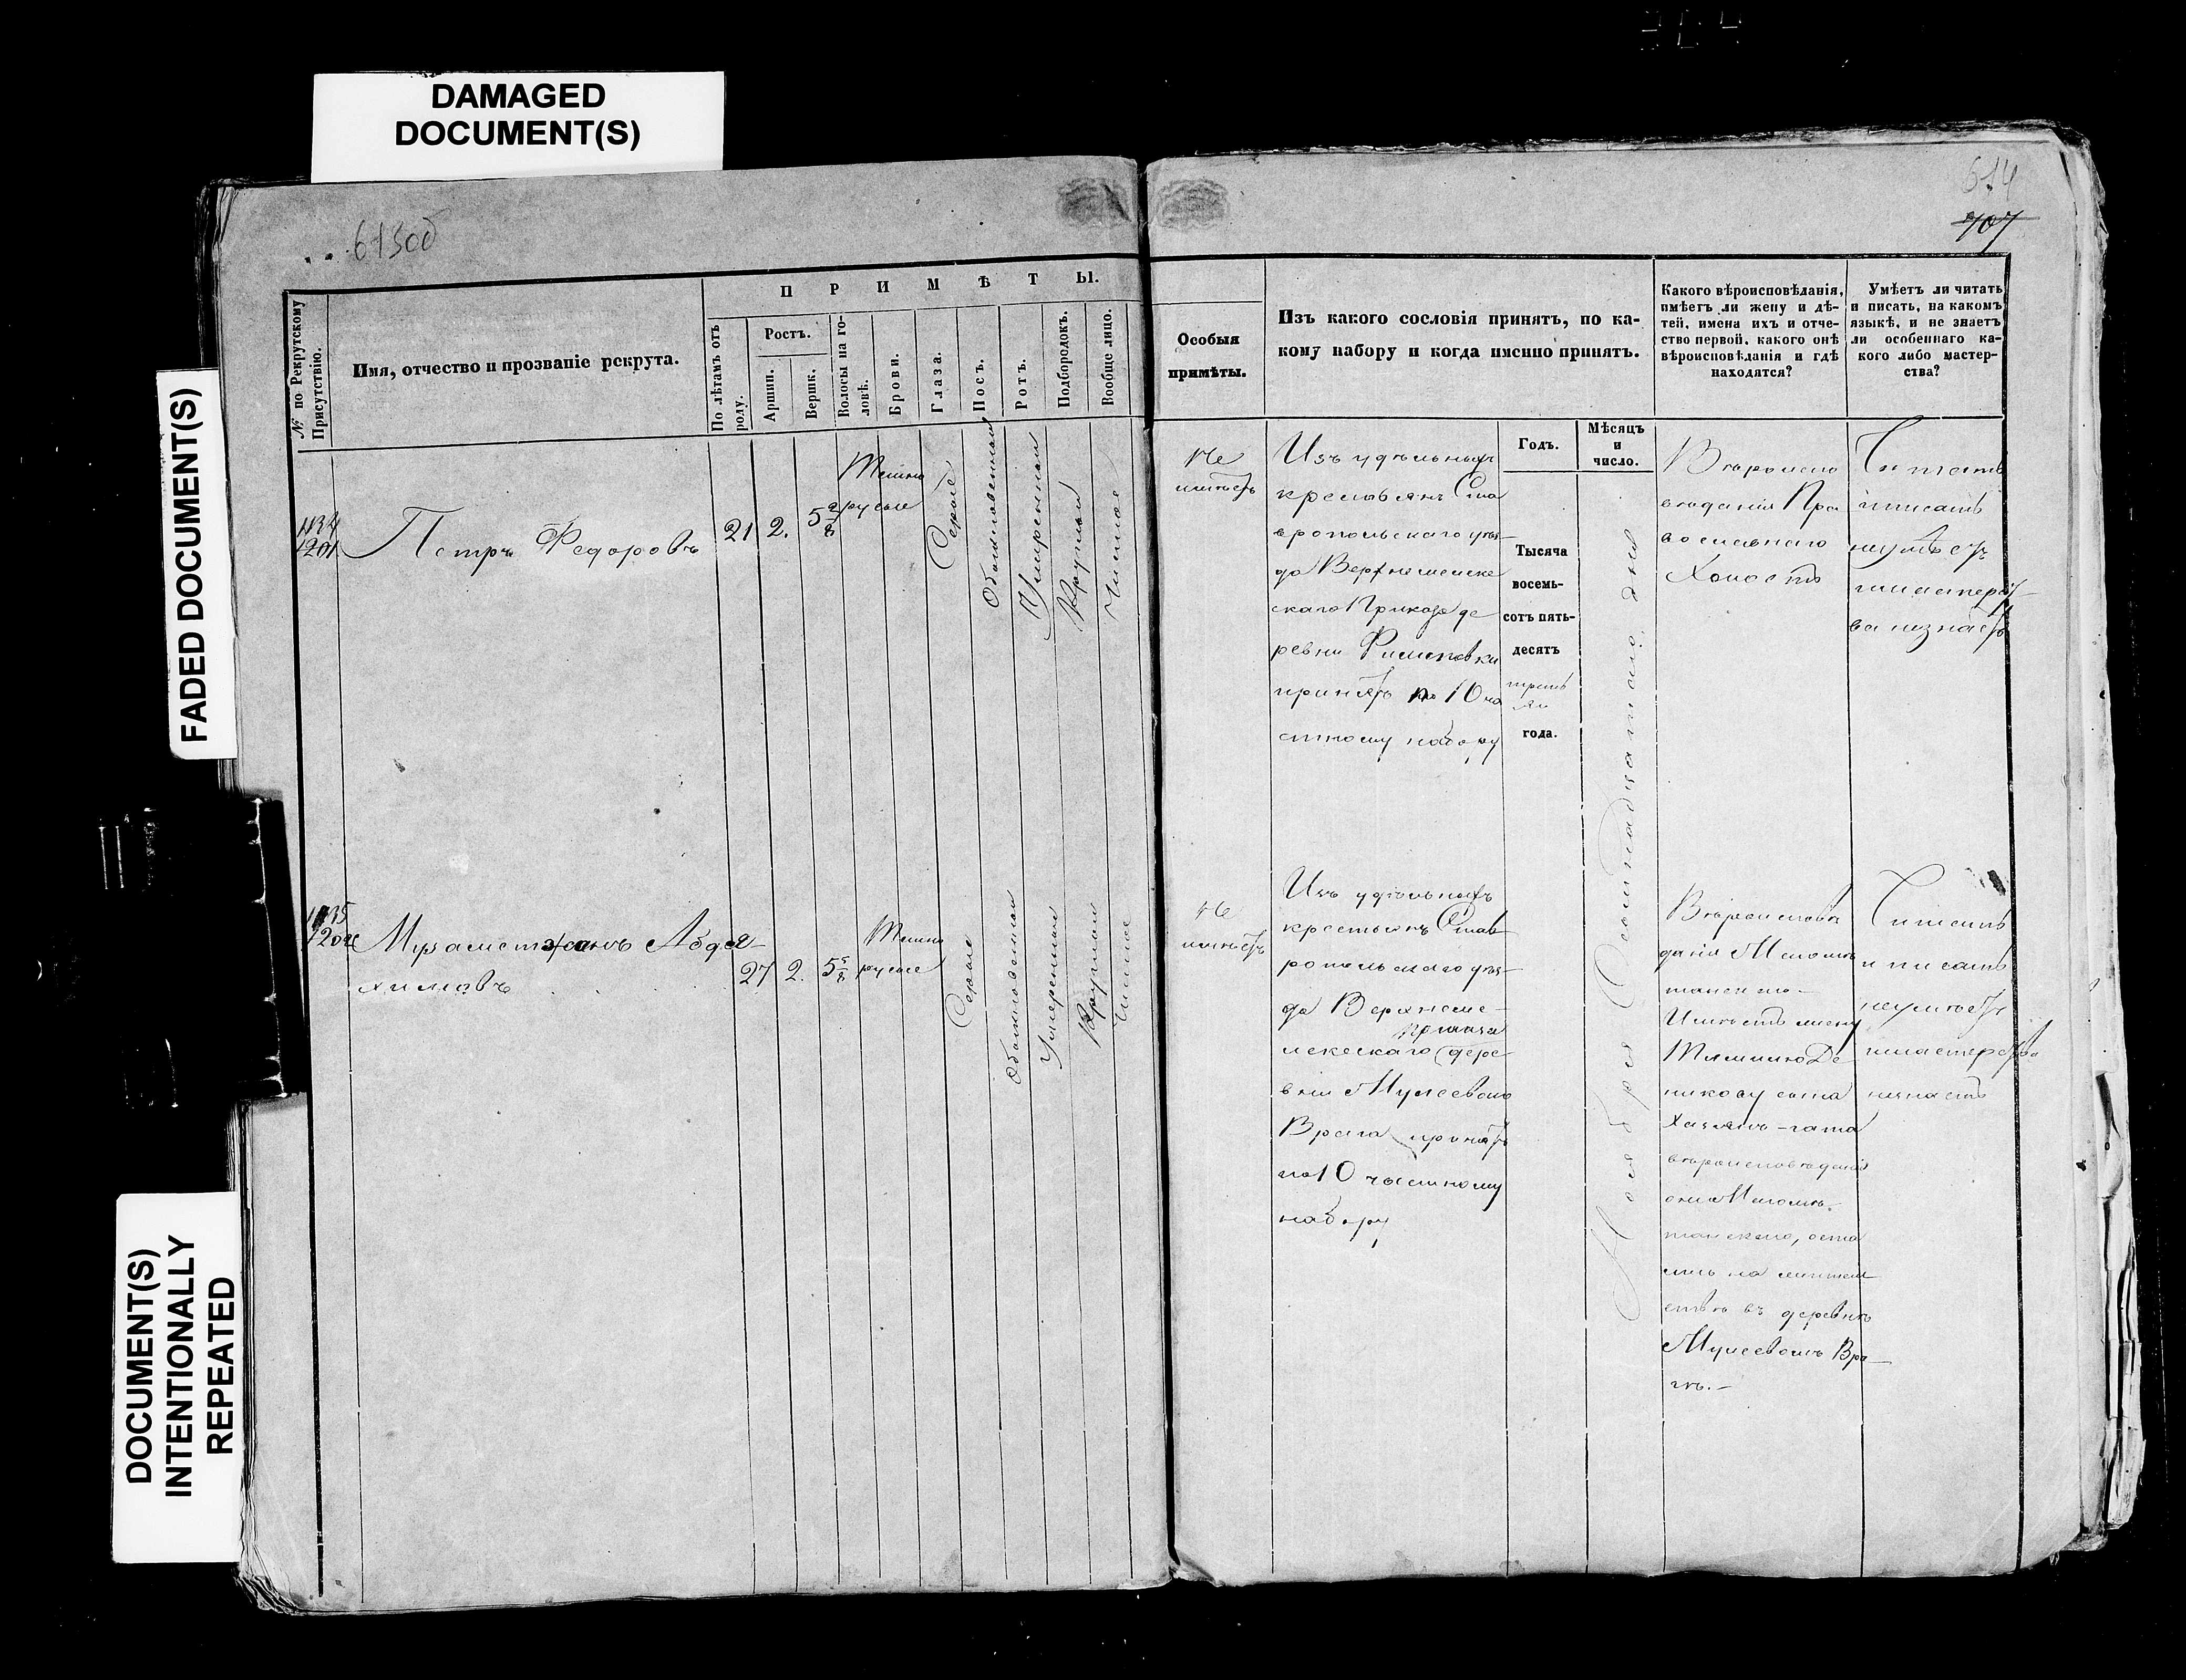 DAMAGED
DOCUMENT(S)
FADED DOCUMENT(S)
DOCUMENT(S)
INTENTIONALLY
REPEATED
613об
614
707
№ по Рекрутскому
Присутствію.
Имя, отчество и прозваніе рекрута.
ПРИМѢТЫ.
По лѣтамъ отъ
роду.
Ростъ.
Аршин.
Вершк.
Волосы на го-
ловѣ.
Брови.
Глаза.
Носъ.
Ротъ.
Подбородокъ.
Вообще лицо.
Особыя
примѣты.
Изъ какого сословія принятъ, по ка-
кому набору и когда именно принятъ.
Какого вѣроисповѣданія,
имѣетъ ли жену и дѣ-
тей, имена ихъ и отче-
ство первой, какого онѣ
вѣроисповѣданія и гдѣ
находятся?
Умѣетъ ли читать
и писать, на какомъ
языкѣ, и не знаетъ
ли особеннаго ка-
кого либо мастер-
ства?
Годъ.
Мѣсяцъ
и
число.
1134
1201
Петръ Федоровъ
21
2.
5 2/8
Темно
русые
Серые
Обыкновенный
Умеренный
Круглый
Чистое
Не
имѣетъ
Изъ удѣльныхъ
крестьянъ Ста
вропольскаго уѣз-
да
скаго Приказа де
ревни Филиповки
принятъ по 10 ча
стному набору
Тысяча
восемь-
сотъ пять-
десятъ
третья
года.
Ноября Семнадцатаго дня
Вѣроиспо
вѣданія Пра
вославнаго
Холостъ
Читать
и писать
неумѣетъ
и мастерст-
ва незнаетъ
1135
1202
Мухаметжанъ Абдел-
химовъ
27
2.
5 5/8
Темно
русые
Серые
Обыкновенный
Умеренный
Круглый
Чистое
Не
имѣетъ
Изъ удѣльныхъ
крестьянъ Став
ропольскаго уѣз-
да Верхнеме-
Приказа
лекескаго дере-
вни Мулеевого
Врага принятъ
по 10 частному
набору
Вѣроисповѣ
данія Магоме
танскаго
Имѣетъ жену
вѣроисповѣданія
они Магоме-
танскаго, оста
лись на житель
ствѣ въ деревнѣ
Мулеевомъ Вра-
гѣ.-
Читать
и писать
неумѣетъ
и мастерства
незнаетъ